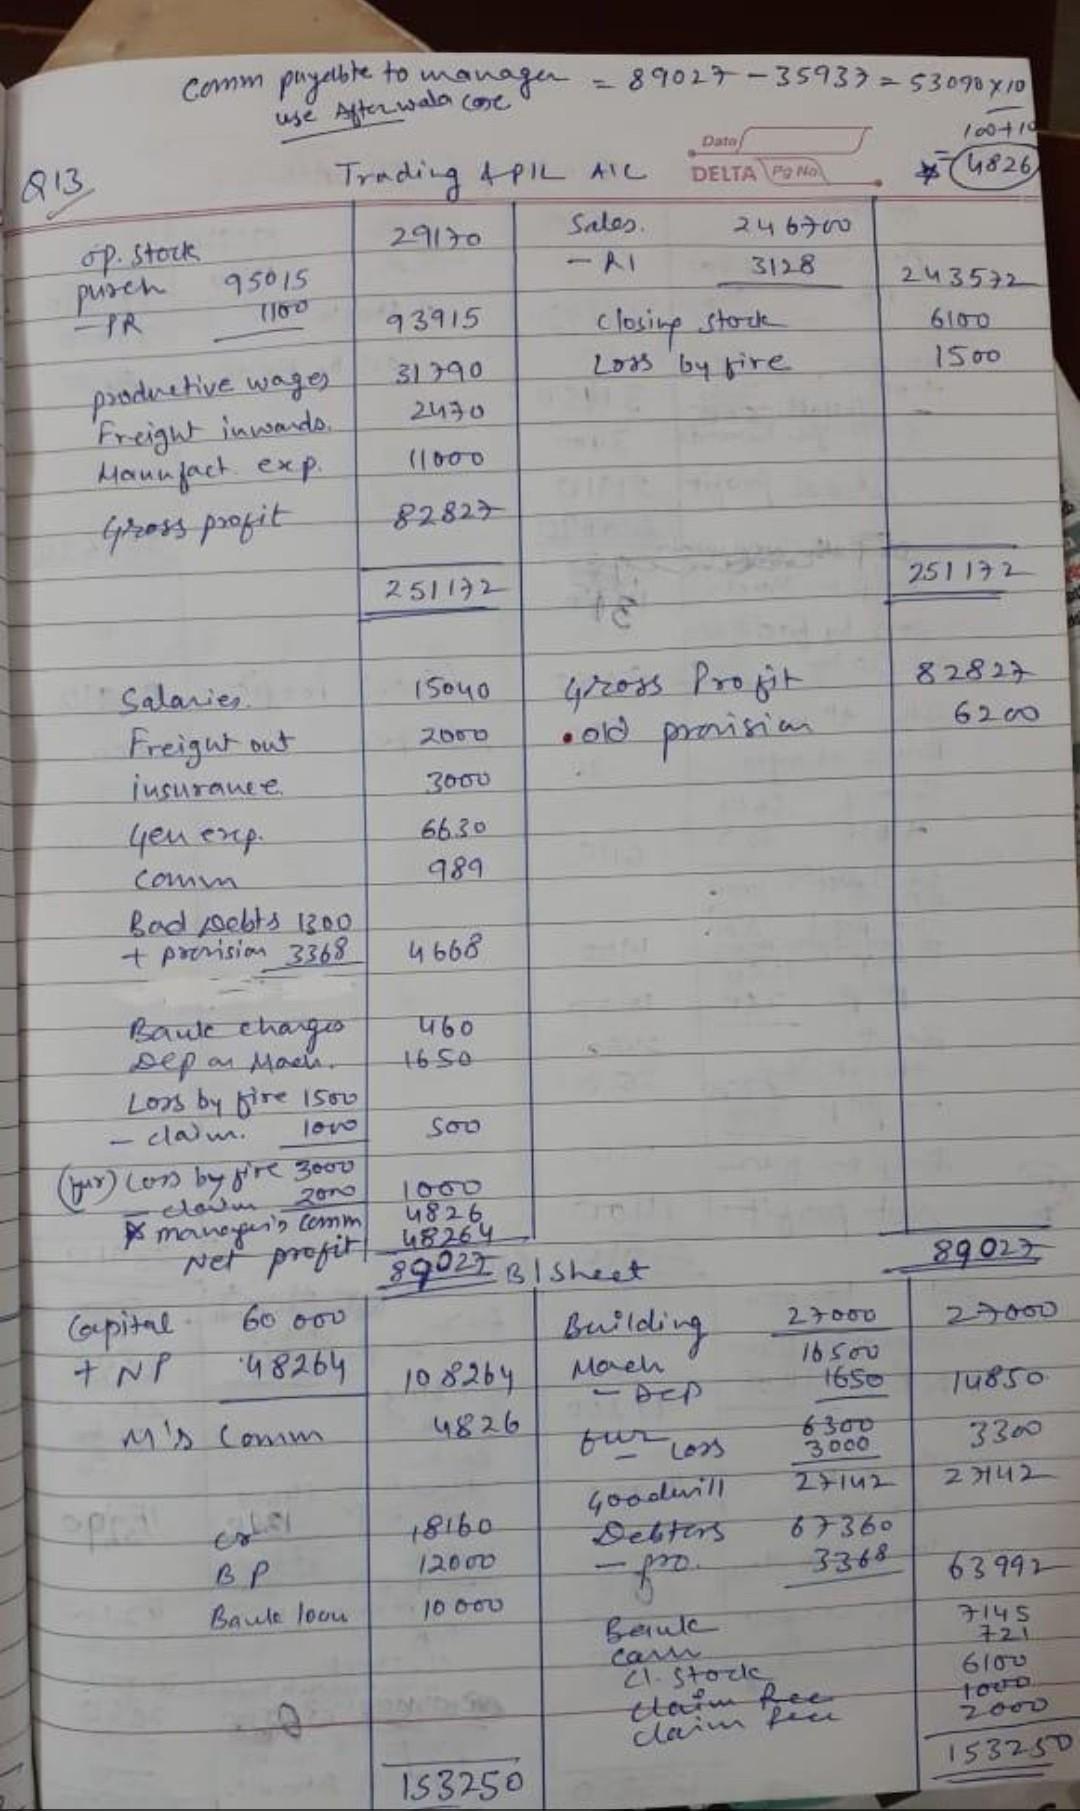 Comm payable to manager = 89027 - 35937 = 53090 x 10
use After wala case
100+10
= 4826
Date
DELTA Pg No.
Q13 Trading & P/L A/C
op. stock 29170 Sales. 246700
purch 95015 - RI 3128 243572
- PR 1100 93915 closing stock 6100
productive wages 31790 Loss by fire 1500
Freight inwards. 2470
Manufact. exp. 11000
Gross profit 82827
251172 251172
Salaries. 15040 Gross Profit 82827
Freight out 2000 old provision 6200
insurance. 3000
Gen exp. 6630
Comm 989
Bad Debts 1300
+ provision 3368 4668
Bank charges 460
Dep on Mach. 1650
Loss by fire 1500
- claim. 1000 500
(fur) Loss by fire 3000
- claim 2000 1000
manager's Comm 4826
Net profit 48264
89027 89027
B/Sheet
Capital 60000 Building 27000 27000
+ NP 48264 108264 Mach 16500
- DEP 1650 14850
M's Comm 4826 fur 6300
- Loss 3000 3300
Goodwill 27142 27142
cr 18160 Debtors 67360
BP 12000 - pro. 3368 63992
Bank loan 10000 Bank 7145
Cash 721
Cl. Stock 6100
claim Rec 1000
claim Rec 2000
153250 153250